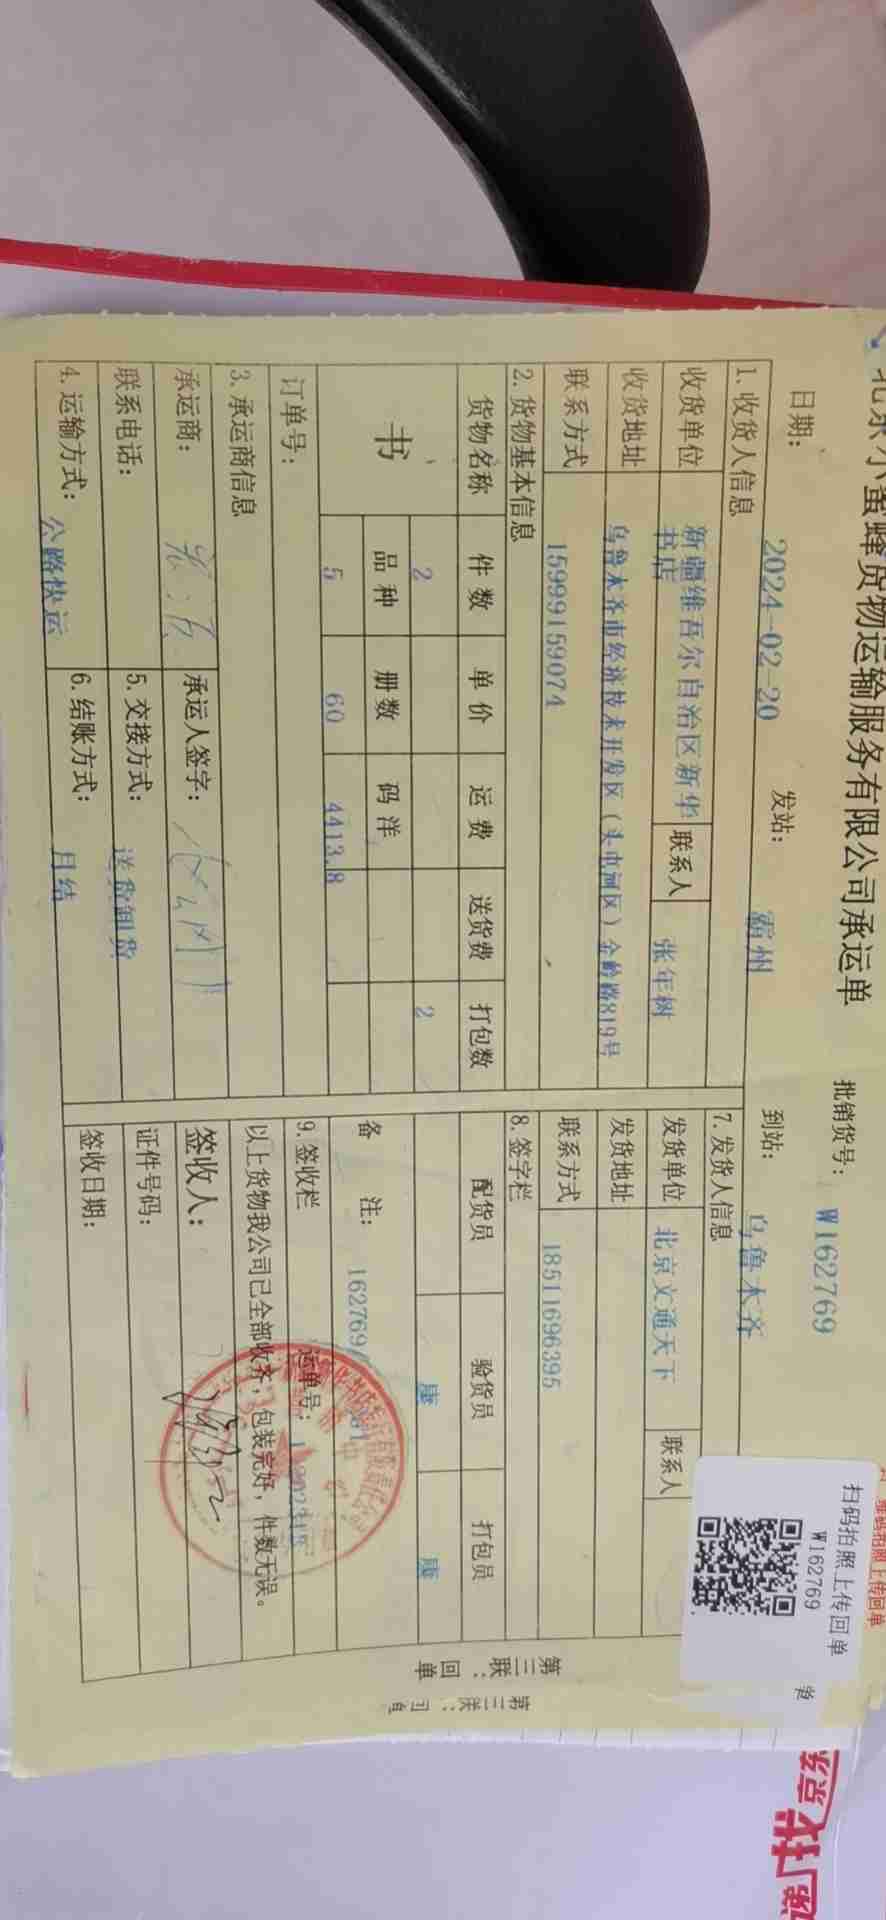 北京小蜜蜂货物运输服务有限公司承运单
批销货号： W162769
日期： 2024-02-20 发站： 霸州 到站： 乌鲁木齐
1. 收货人信息
收货单位 新疆维吾尔自治区新华书店 联系人 张年树
收货地址 乌鲁木齐市经济技术开发区（头屯河区）金岭路819号
联系方式 15999159074
2. 货物基本信息
货物名称 件数 单价 运费 送货费 打包数
书 2 2
品种 册数 码洋
5 60 4413.8
订单号：
3. 承运商信息
承运商： 承运人签字：
联系电话： 5. 交接方式： 送货卸货
4. 运输方式： 公路快运 6. 结账方式： 月结
7. 发货人信息
发货单位 北京文通天下 联系人
发货地址
联系方式 18511696395
8. 签字栏
配货员 验货员 打包员
康 康
备注： 162769
9. 签收栏 运单号：
以上货物我公司已全部收齐，包装完好，件数无误。
签收人：
证件号码：
签收日期：
第三联：回单
第三联：回单
扫码拍照上传回单
W162769
扫码拍照上传回单